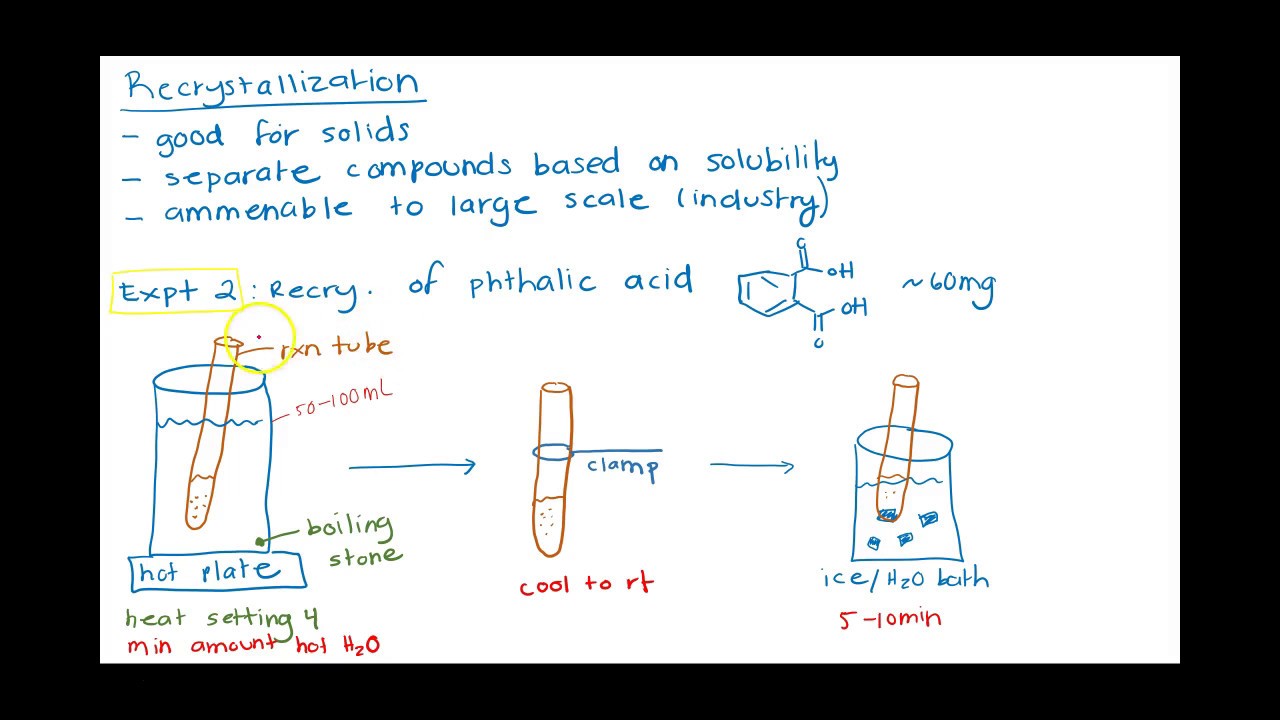 Recrystallization
- good for solids
- separate compounds based on solubility
- ammenable to large scale (industry)
Expt 2 : Recry. of phthalic acid
O
OH
OH
O
~60mg
rxn tube
50-100mL
clamp
boiling
stone
hot plate
cool to rt
ice/H₂O bath
heat setting 4
5-10min
min amount hot H₂O